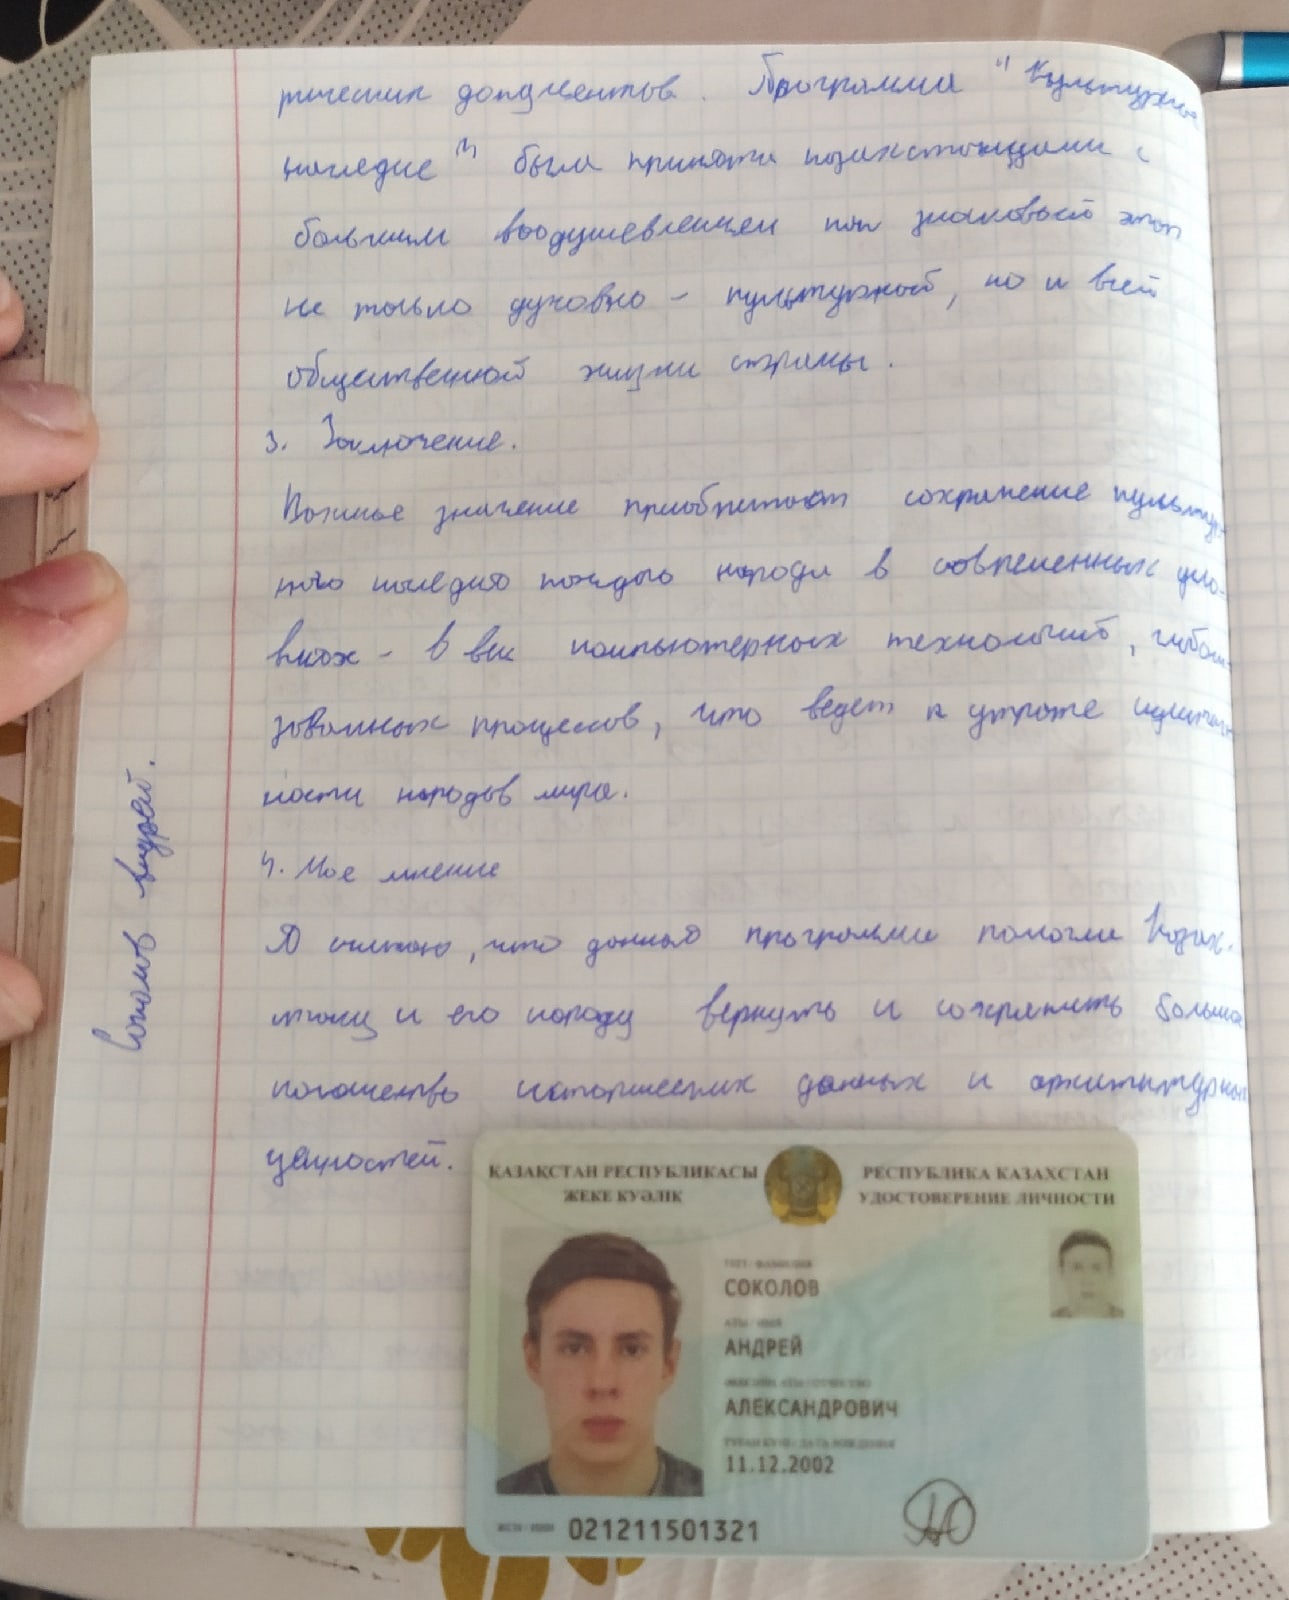 тических документов. Программа "Культурное
наследие" была принята казахстанцами с
большим воодушевлением как знаковый этап
не только духовно - культурной, но и всей
общественной жизни страны.
3. Заключение.
Важное значение приобретает сохранение культур-
ного наследия каждого народа в современных усло-
виях - в век компьютерных технологий,
процессов, что ведет к утрате
ности народов мира.
4. Мое мнение
Я считаю, что данная программа помогла Казах-
стану и его народу вернуть и сохранить большое
количество исторических данных и архитектурных
ценностей.
Соколов Андрей.
ҚАЗАҚСТАН РЕСПУБЛИКАСЫ
ЖЕКЕ КУӘЛІК
РЕСПУБЛИКА КАЗАХСТАН
УДОСТОВЕРЕНИЕ ЛИЧНОСТИ
ТЕГІ / ФАМИЛИЯ
СОКОЛОВ
АТЫ / ИМЯ
АНДРЕЙ
ӘКЕСІНІҢ АТЫ / ОТЧЕСТВО
АЛЕКСАНДРОВИЧ
ТУҒАН КҮНІ / ДАТА РОЖДЕНИЯ
11.12.2002
ЖСН / ИИН 021211501321